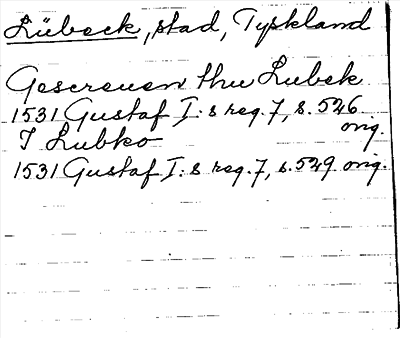 Lübeck, stad, Tyskland
Gescreuen thu Lubek
1531 Gustaf I:s reg. 7, s. 526
orig.
I Lubko
1531 Gustaf I:s reg. 7, s. 529 orig.